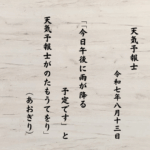 天気予報士
令和七年八月十三日
「「今日午後に雨が降る
予定です」と
天気予報士がのたもうてをり」
(あおぎり)